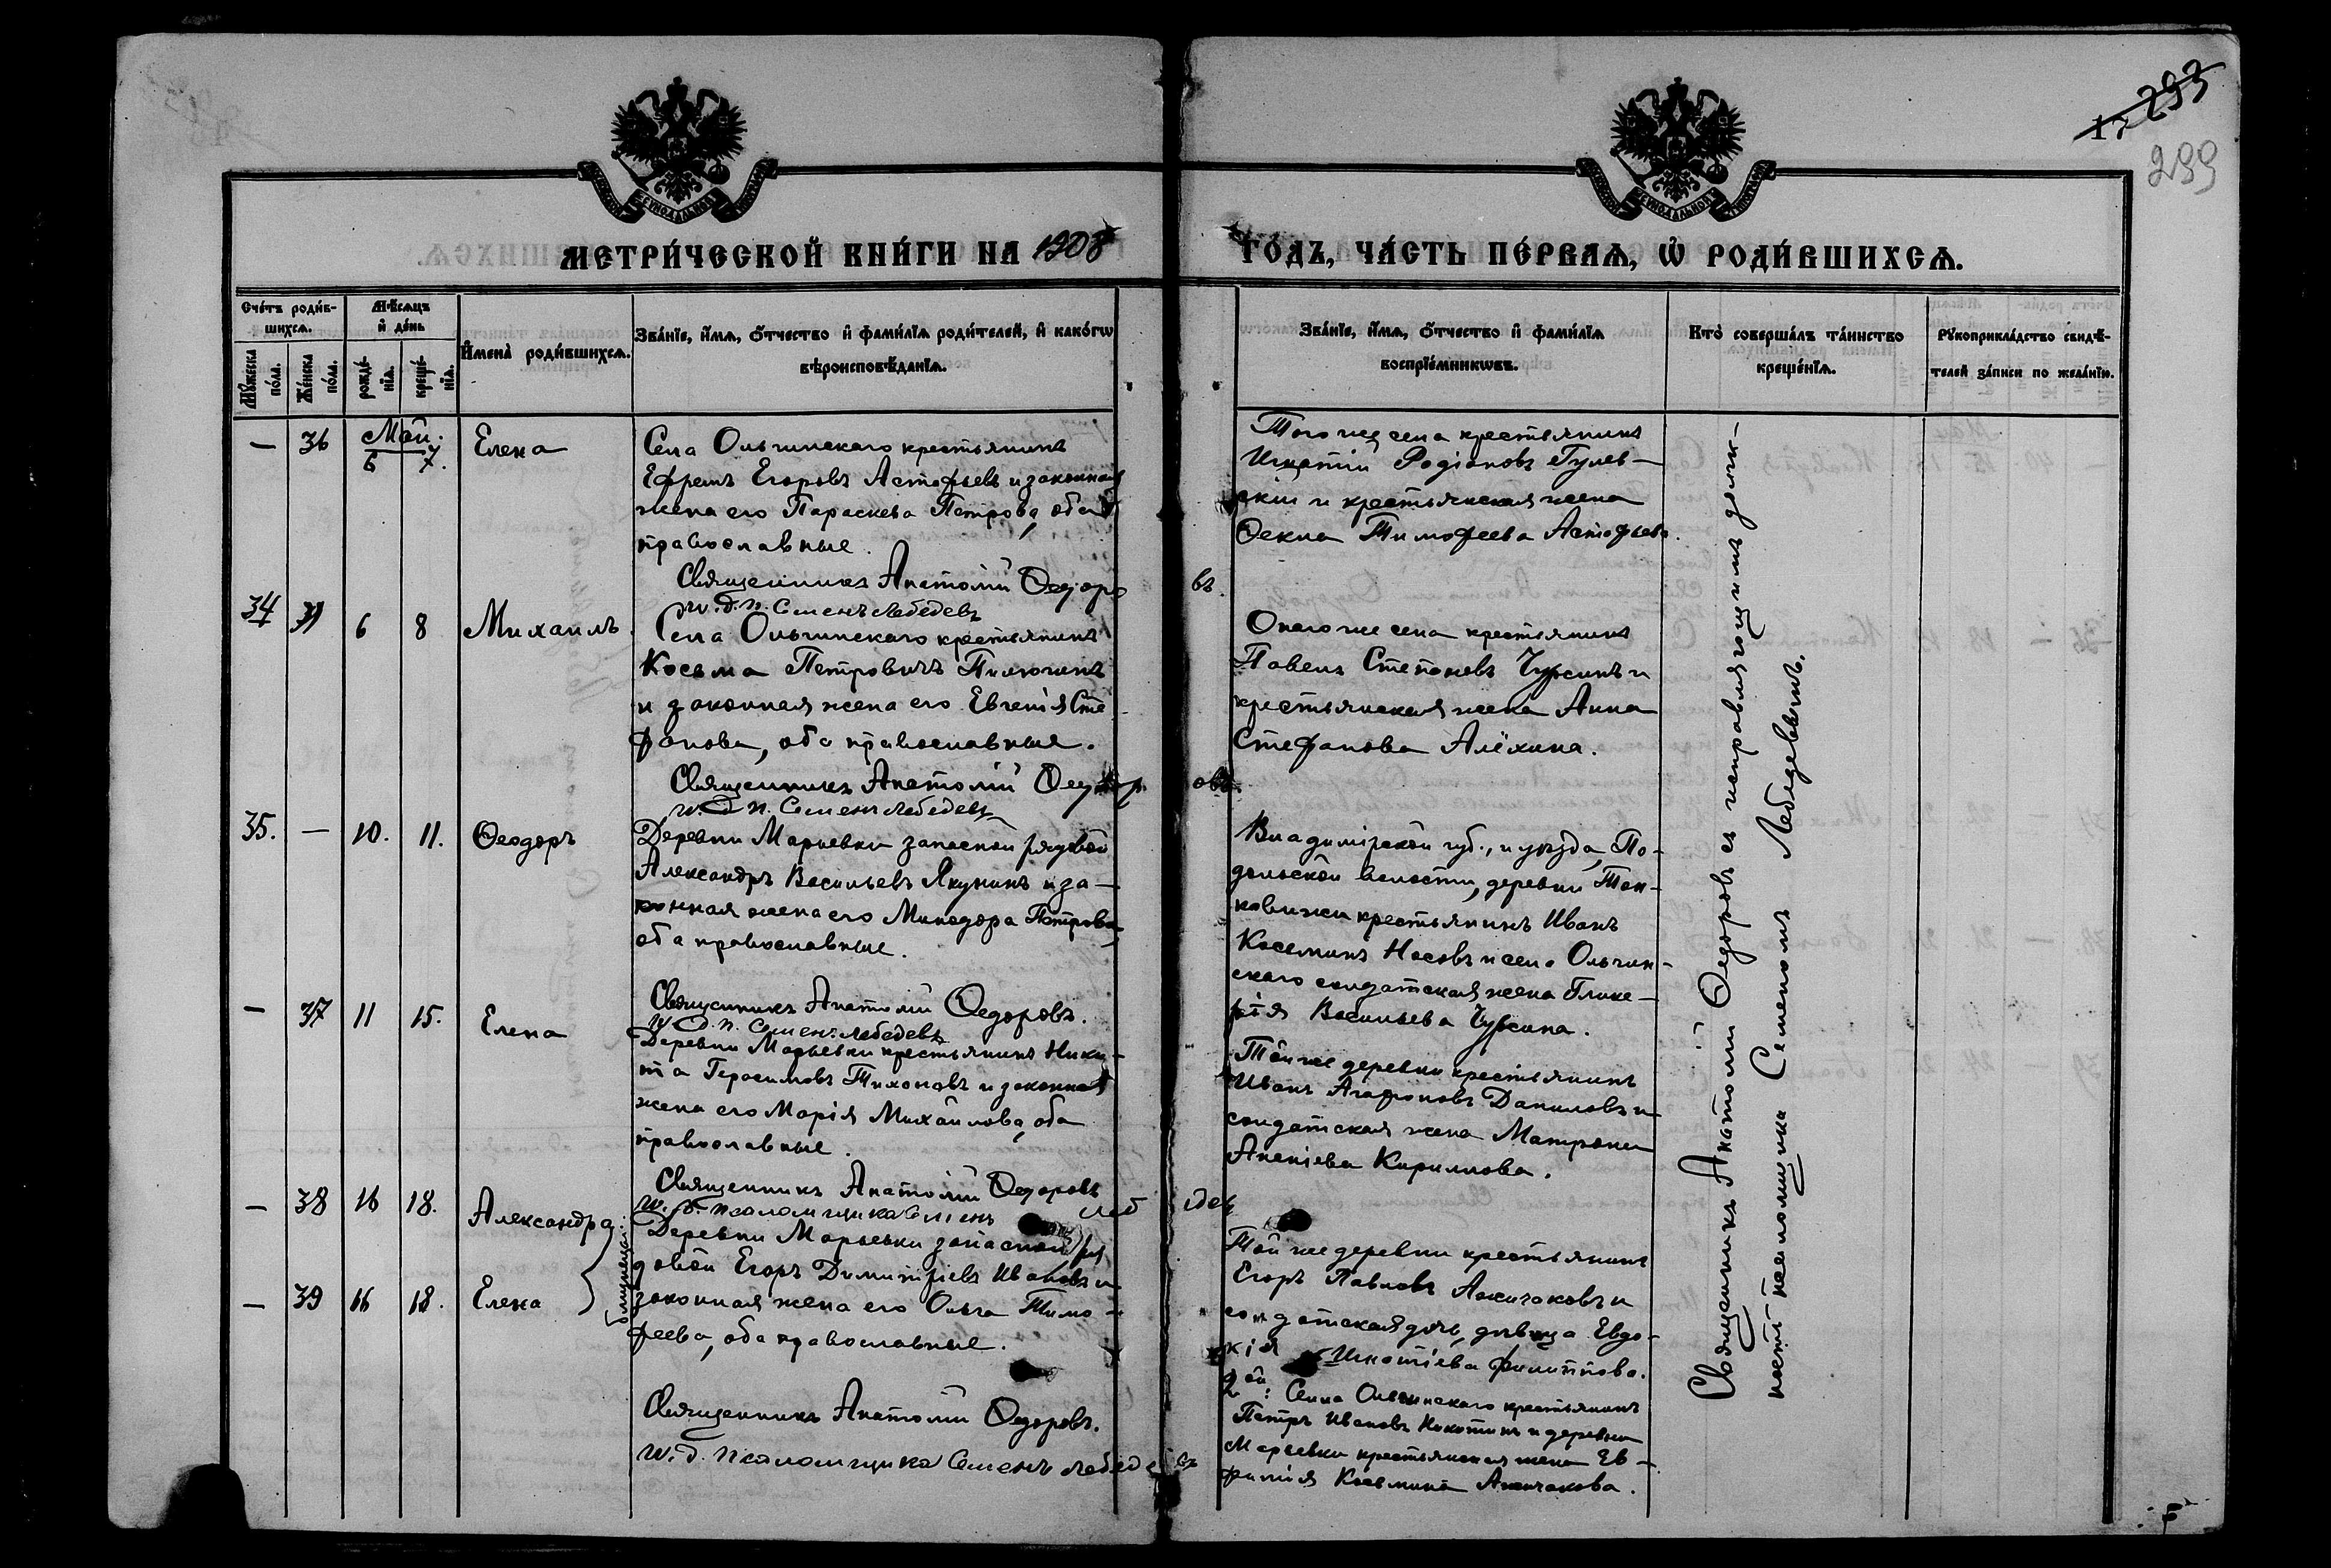 17 293
299
МЕТРИ́ЧЕСКОЙ КНИ́ГИ НА 1908
ГО́ДЪ, ЧА́СТЬ ПЕ́РВАѦ, Ѡ҆ РОДИ́ВШИХСѦ.
Сче́тъ роди́в-
шихсѧ.
Мꙋ́жеска
по́ла.
Же́нска
по́ла.
Мѣ́сѧцъ
и҆ де́нь
рожде́-
нїѧ.
креще́-
нїѧ.
И҆мена̀ роди́вшихсѧ.
Зва́нїе, и҆́мѧ, ѻ҆́тчество и҆ фами́лїѧ роди́телей, и҆ како́гѡ
вѣроисповѣ́данїѧ.
Зва́нїе, и҆́мѧ, ѻ҆́тчество и҆ фами́лїѧ
воспрїе́мникѡвъ.
Кто̀ соверша́лъ та́инство
креще́нїѧ.
Рꙋкоприкла́дство свидѣ́-
телей за́писи по жела́нїю.
— 36 Май. 6 7. Елена
Села Ольгинскаго крестьянинъ
Ефремъ Егоровъ Астафьевъ и законная
жена его Параскева Петрова, оба
православные.
Священникъ Анатолій Ѳедоровъ.
и. д. п. Семенъ Лебедевъ
Того же села крестьянинъ
Игнатій Родіоновъ Гулев-
скій и крестьянская жена
Ѳекла Тимофеева Астафьева.
34 6 8 Михаилъ.
Села Ольгинскаго крестьянинъ
Косьма Петровичъ Пилюгинъ
и законная жена его Евгенія Сте-
фанова, оба православные.
Священникъ Анатолій Ѳедоровъ.
и. д. п. Семенъ Лебедевъ
Онаго же села крестьянинъ
Павелъ Степановъ Чурсинъ и
крестьянская жена Анна
Стефанова Алёхина.
35. — 10. 11. Ѳеодоръ
Деревни Марьевки запасной рядовой
Александръ Васильевъ Якунинъ и за-
конная жена его Минодора Петрова,
оба православные.
Священникъ Анатолій Ѳедоровъ.
и. д. п. Семенъ Лебедевъ
Владимірской губ., и уѣзда, По-
дольской волости, деревни
крестьянинъ Иванъ
Косьминъ Носовъ и села Ольгин-
скаго солдатская жена Глике-
рія Васильева Чурсина.
— 37 11 15. Елена
Деревни Марьевки крестьянинъ Ники-
та Герасимовъ Тихоновъ и законная
жена его Марія Михайлова, оба
православные.
Священникъ Анатолій Ѳедоровъ
и. д. псаломщика Семенъ Лебедевъ
Той же деревни крестьянинъ
Иванъ Агафоновъ Даниловъ и
солдатская жена Матрона
Алексіева Кириллова.
— 38 16 18. Александра.
— 39 16 18. Елена
близнецы
Деревни Марьевки запасной ря-
довой Егоръ Димитріевъ Ивановъ и
законная жена его Ольга Тимо-
феева, оба православные.
Священникъ Анатолій Ѳедоровъ.
и. д. псаломщика Семенъ Лебедевъ
Той же деревни крестьянинъ
Егоръ Павловъ Аксичаковъ и
солдатская дочь, дѣвица Евдо-
кія Игнатіева Филиппова.
2ой: Села Ольгинскаго крестьянинъ
Петръ Ивановъ Никитинъ и деревни
Марьевки крестьянская жена Ев-
фимія Косьмина Аксичакова.
Священникъ Анатолій Ѳедоровъ съ исправляющимъ долж-
ность псаломщика Семеномъ Лебедевымъ.